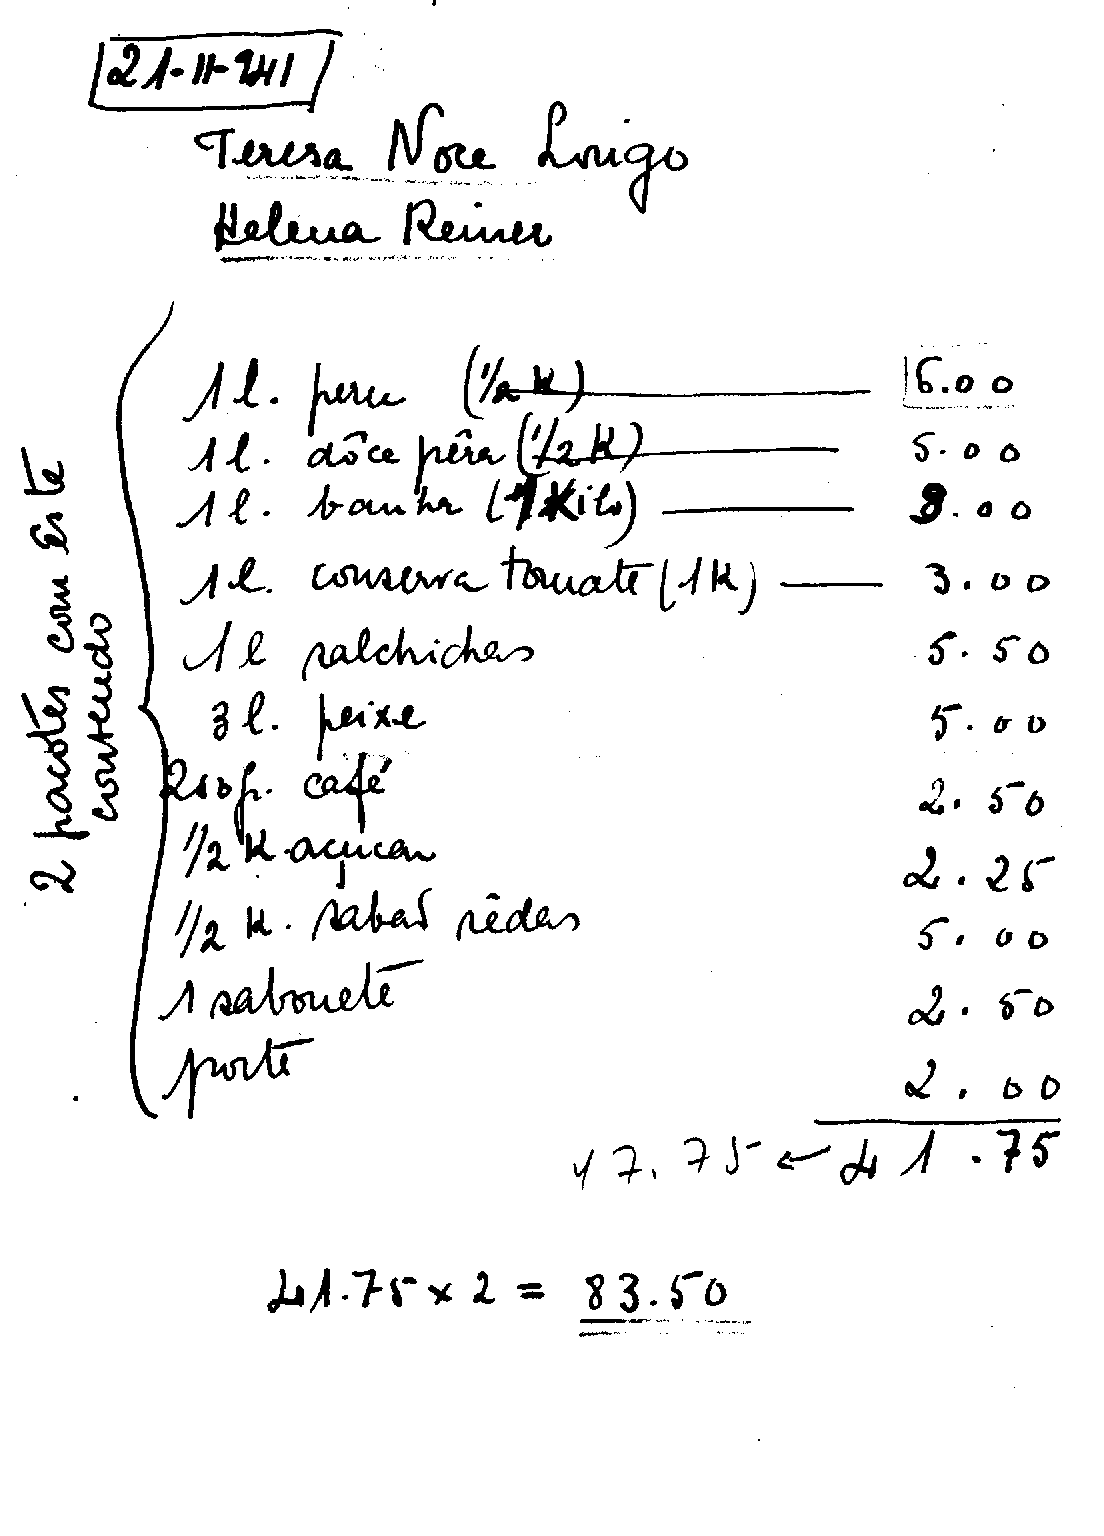 21-11-941
Teresa Noce Longo
Helena Reiner
2 pacotes com este
conteudo
1 l. peru (1/2 K) 6.00
1 l. dôce pêra (1/2 K) 5.00
1 l. banha (1 Kilo) 8.00
1 l. conserva tomate (1 K) 3.00
1 l salchichas 5.50
3 l. peixe 5.00
250 gr. café 2.50
1/2 K açucar 2.25
1/2 K. sabaõ sêdas 5.00
1 sabonete 2.50
porte 2.00
47.75 ← 41.75
41.75 x 2 = 83.50